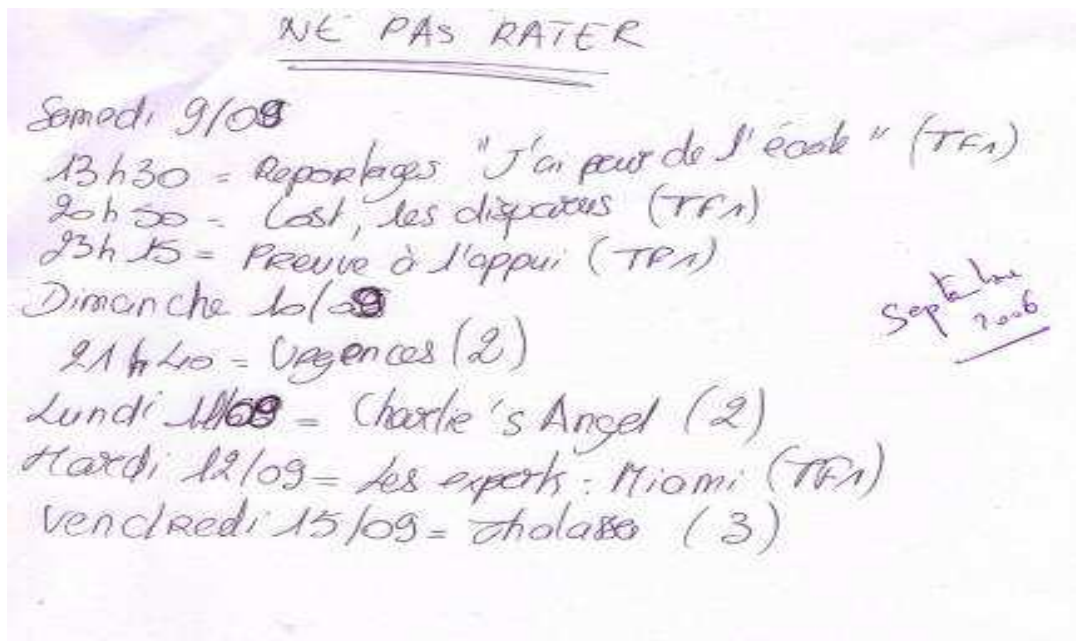 NE PAS RATER
Samedi 9/09
13h30 = Reportages "J'ai peur de l'école" (TF1)
20h50 = Lost, les disparus (TF1)
23h15 = Preuve à l'appui (TF1)
Dimanche 10/09
21h40 = Urgences (2)
Lundi 11/09 = Charlie's Angel (2)
Mardi 12/09 = Les experts : Miami (TF1)
Vendredi 15/09 = Thalassa (3)
Septembre
2006